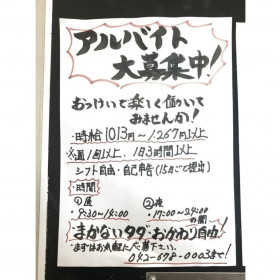 アルバイト
大募集中!
おっけいで楽しく働いて
みませんか!
・時給1013円~1267円以上
※週1回以上、1日3時間以上
シフト自由・自己申告(15日ごと提出)
・時間
①昼
・9:30~14:00
②夜
・17:00~24:00
の間
まかないタダ・おかわり自由!
・まずはお気軽に応募下さい。
042-678-0003まで!